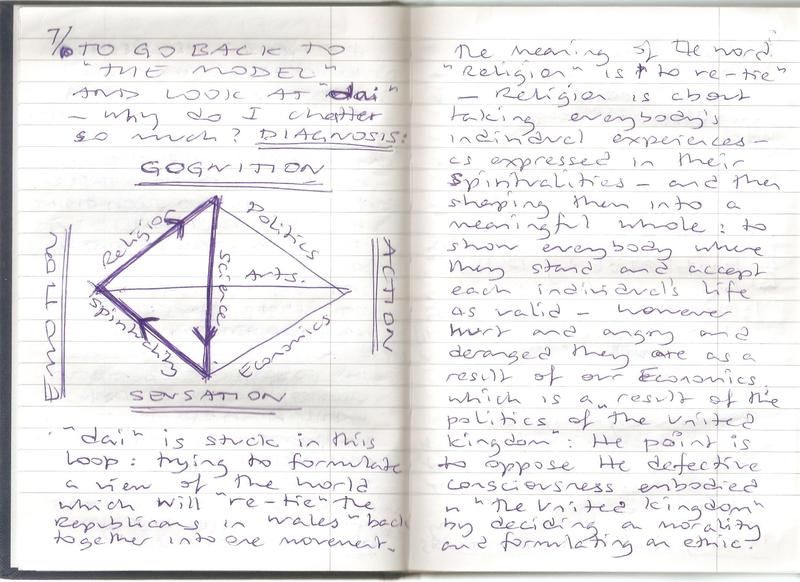 7/
TO GO BACK TO
"THE MODEL"
AND LOOK AT "dai"
– why do I chatter
so much? DIAGNOSIS:
GOGNITION
Religion
Politics
Science
Arts.
EMOTION
ACTION
Spirituality
Economics
SENSATION
"dai" is stuck in this
loop: trying to formulate
a view of the world
which will "re-tie" the
Republicans in Wales "back
together into one movement.
the meaning of the word
"Religion" is "to re-tie"
– Religion is about
taking everybody's
individual experiences –
as expressed in their
Spiritualities – and then
shaping them into a
meaningful whole: to
show everybody where
they stand and accept
each individual's life
as valid – however
hurt and angry and
deranged they are as a
result of our Economics,
which is a result of the
politics of "the United
Kingdom": the point is
to oppose the defective
consciousness embodied
in "the United Kingdom"
by deciding on morality
and formulating an ethic.